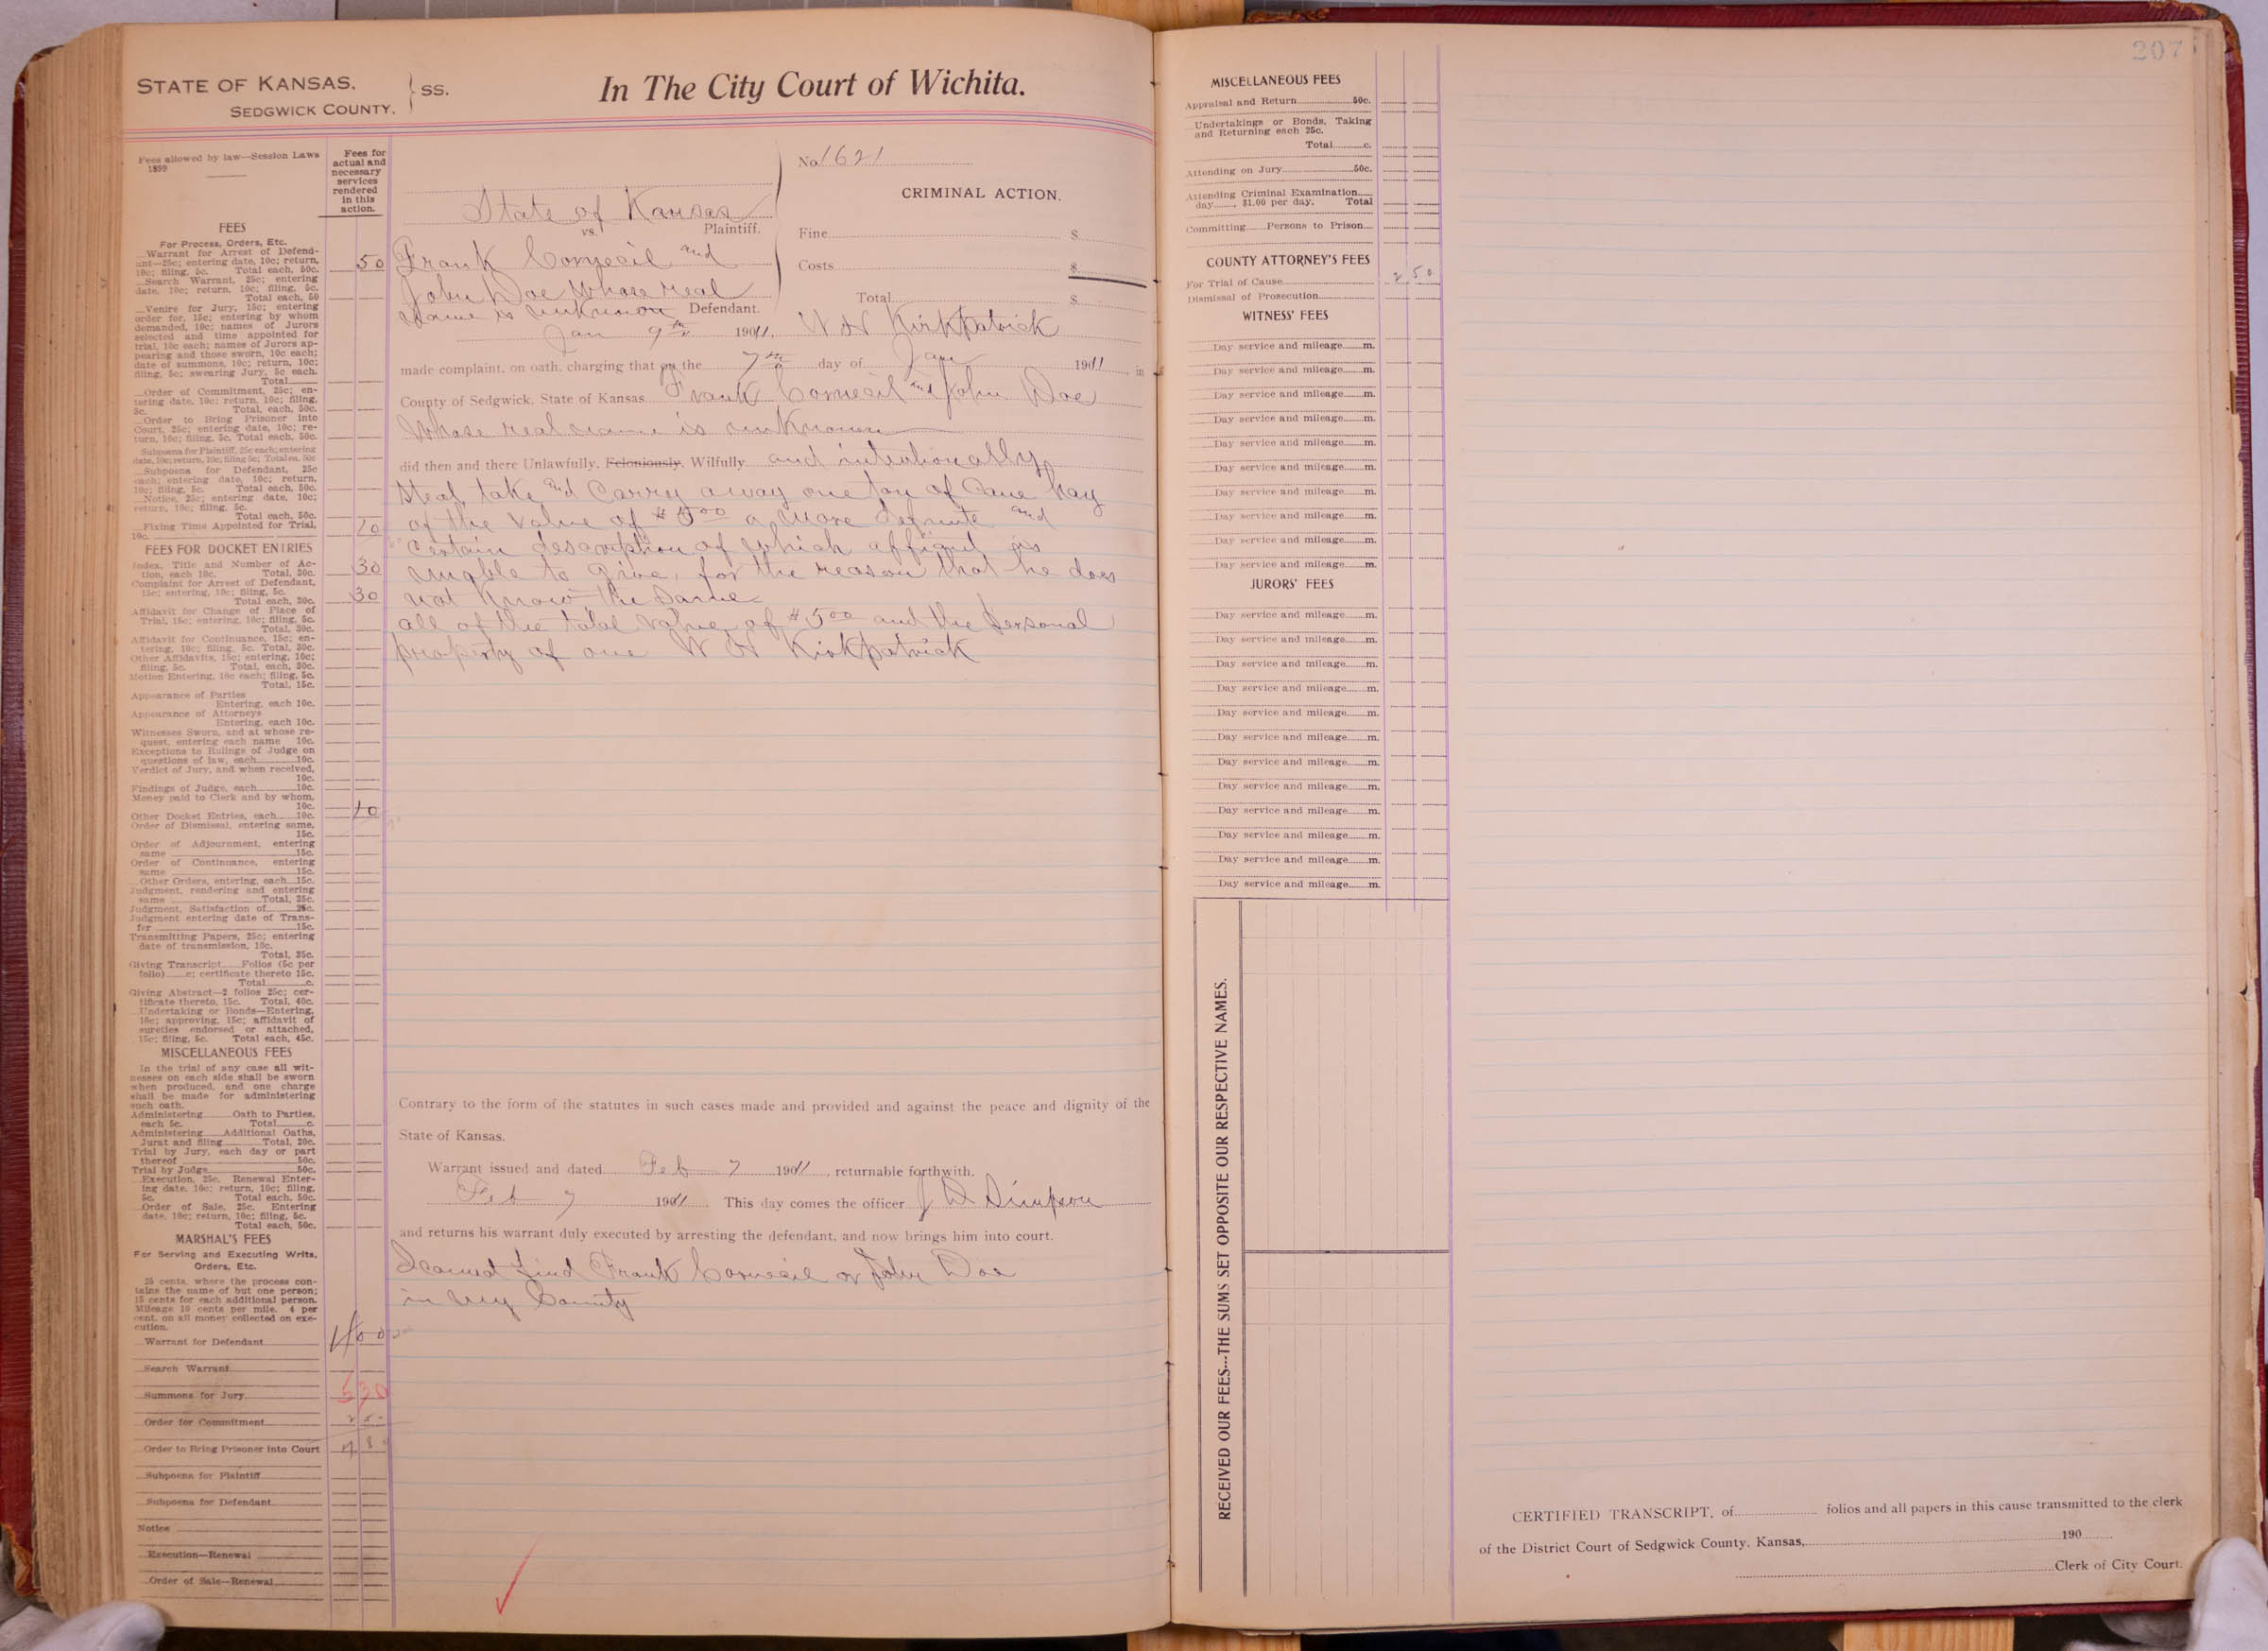 STATE OF KANSAS,
SEDGWICK COUNTY.
SS.
In The City Court of Wichita.
Fees allowed by law—Session Laws
1899
Fees for
actual and
necessary
services
rendered
in this
action.
FEES
For Process, Orders, Etc.
Warrant for Arrest of Defend-
ant—25c; entering date, 10c; return,
10c; filing, 5c. Total each, 50c. 50
Search Warrant, 25c; entering
date, 10c; return, 10c; filing, 5c.
Total each, 50
Venire for Jury, 15c; entering
order for, 15c; entering by whom
demanded, 10c; names of Jurors
selected and time appointed for
trial, 10c each; names of Jurors ap-
pearing and those sworn, 10c each;
date of summons, 10c; return, 10c;
filing, 5c; swearing Jury, 5c each.
Total
Order of Commitment, 25c; en-
tering date, 10c; return, 10c; filing,
5c. Total, each, 50c.
Order to Bring Prisoner into
Court, 25c; entering date, 10c; re-
turn, 10c; filing, 5c. Total each, 50c.
Subpoena for Plaintiff, 25c each; entering
date, 10c; return, 10c; filing 5c; Total ea. 50c
Subpoena for Defendant, 25c
each; entering date, 10c; return,
10c; filing, 5c. Total each, 50c.
Notice, 25c; entering date, 10c;
return, 10c; filing, 5c.
Total each, 50c.
Fixing Time Appointed for Trial,
10c. 10
FEES FOR DOCKET ENTRIES
Index, Title and Number of Ac-
tion, each 10c. Total, 30c. 30
Complaint for Arrest of Defendant,
15c; entering, 10c; filing, 5c.
Total each, 30c. 30
Affidavit for Change of Place of
Trial, 15c; entering, 10c; filing, 5c.
Total, 30c.
Affidavit for Continuance, 15c; en-
tering, 10c; filing, 5c. Total, 30c.
Other Affidavits, 15c; entering, 10c;
filing, 5c. Total, each, 30c.
Motion Entering, 10c each; filing, 5c.
Total, 15c.
Appearance of Parties
Entering, each 10c.
Appearance of Attorneys
Entering, each 10c.
Witnesses Sworn, and at whose re-
quest, entering each name 10c.
Exceptions to Rulings of Judge on
questions of law, each 10c.
Verdict of Jury, and when received,
10c.
Findings of Judge, each 10c.
Money paid to Clerk and by whom,
10c.
Other Docket Entries, each 10c. 10
Order of Dismissal, entering same,
15c.
Order of Adjournment, entering
same 15c.
Order of Continuance, entering
same 15c.
Other Orders, entering, each 15c.
Judgment, rendering and entering
same Total, 35c.
Judgment, Satisfaction of 25c.
Judgment entering date of Trans-
fer 15c.
Transmitting Papers, 25c; entering
date of transmission, 10c.
Total, 35c.
Giving Transcript Folios (5c per
folio) c; certificate thereto 15c.
Total c.
Giving Abstract—2 folios 25c; cer-
tificate thereto, 15c. Total, 40c.
Undertaking or Bonds—Entering,
10c; approving, 15c; affidavit of
sureties endorsed or attached,
15c; filing, 5c. Total each, 45c.
MISCELLANEOUS FEES
In the trial of any case all wit-
nesses on each side shall be sworn
when produced, and one charge
shall be made for administering
such oath.
Administering Oath to Parties,
each 5c. Total c.
Administering Additional Oaths,
Jurat and filing Total, 20c.
Trial by Jury, each day or part
thereof 50c.
Trial by Judge 50c.
Execution, 25c. Renewal Enter-
ing date, 10c; return, 10c; filing,
5c. Total each, 50c.
Order of Sale, 25c. Entering
date, 10c; return, 10c; filing, 5c.
Total each, 50c.
MARSHAL'S FEES
For Serving and Executing Writs,
Orders, Etc.
25 cents, where the process con-
tains the name of but one person;
15 cents for each additional person.
Mileage 10 cents per mile. 4 per
cent. on all money collected on exe-
cution.
Warrant for Defendant
Search Warrant
Summons for Jury 5 30
Order for Commitment 2 50
Order to Bring Prisoner into Court
Subpoena for Plaintiff
Subpoena for Defendant
Notice
Execution—Renewal
Order of Sale—Renewal
No 1621
CRIMINAL ACTION.
State of Kansas
vs. Plaintiff.
Frank Corneeil and
John Doe whose real
name is unknown Defendant.
Fine $
Costs $
Total $
Jan 9th 1911. W H Kirkpatrick
made complaint, on oath, charging that on the 7th day of Jan 1911, in
County of Sedgwick, State of Kansas Frank Corneeil and John Doe
Whose real name is unknown
did then and there Unlawfully, Feloniously, Wilfully and intentionally
steal take and carry away one ton of Cane hay
of the value of $5.00 a more definite and
certain description of which affiant is
unable to give, for the reason that he does
not know the same
all of the total value of $5.00 and the personal
property of one W H Kirkpatrick
Contrary to the form of the statutes in such cases made and provided and against the peace and dignity of the
State of Kansas.
Warrant issued and dated Feb 7 1911, returnable forthwith.
Feb 7 1911 This day comes the officer J D Simpson
and returns his warrant duly executed by arresting the defendant, and now brings him into court.
I cannot find Frank Corneeil or John Doe
in my County
207
MISCELLANEOUS FEES
Appraisal and Return 50c.
Undertakings or Bonds, Taking
and Returning each 25c.
Total c.
Attending on Jury 50c.
Attending Criminal Examination
day, $1.00 per day. Total
Committing Persons to Prison
COUNTY ATTORNEY'S FEES
For Trial of Cause 2 50
Dismissal of Prosecution
WITNESS' FEES
Day service and mileage m.
Day service and mileage m.
Day service and mileage m.
Day service and mileage m.
Day service and mileage m.
Day service and mileage m.
Day service and mileage m.
Day service and mileage m.
Day service and mileage m.
Day service and mileage m.
JURORS' FEES
Day service and mileage m.
Day service and mileage m.
Day service and mileage m.
Day service and mileage m.
Day service and mileage m.
Day service and mileage m.
Day service and mileage m.
Day service and mileage m.
Day service and mileage m.
Day service and mileage m.
Day service and mileage m.
Day service and mileage m.
RECEIVED OUR FEES---THE SUMS SET OPPOSITE OUR RESPECTIVE NAMES.
CERTIFIED TRANSCRIPT, of folios and all papers in this cause transmitted to the clerk
of the District Court of Sedgwick County, Kansas, 190
Clerk of City Court.